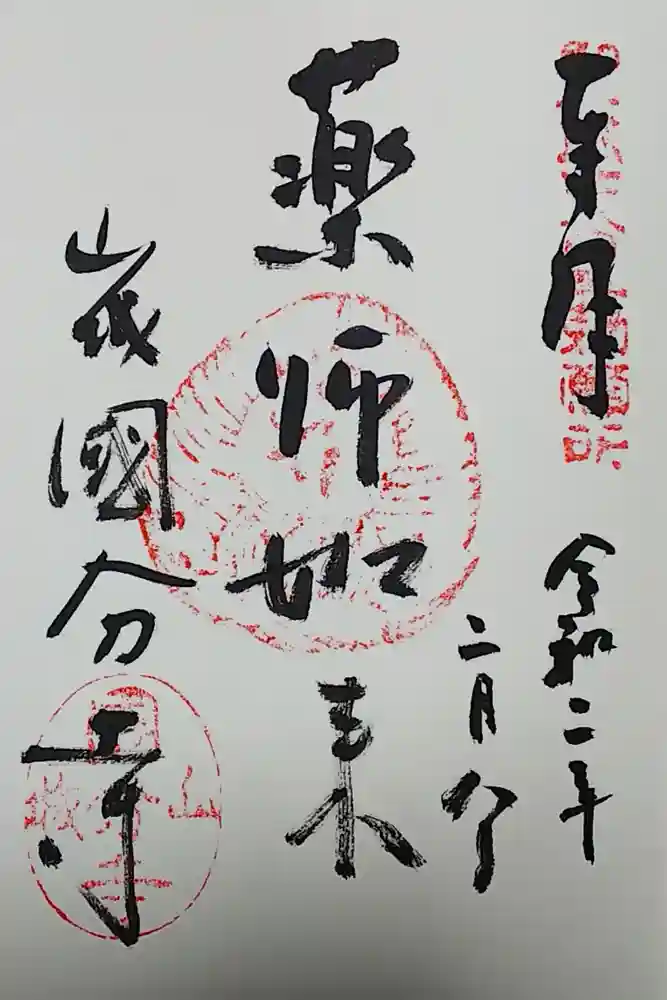 奉拝
令和二年
二月
薬師如来
山城國分寺